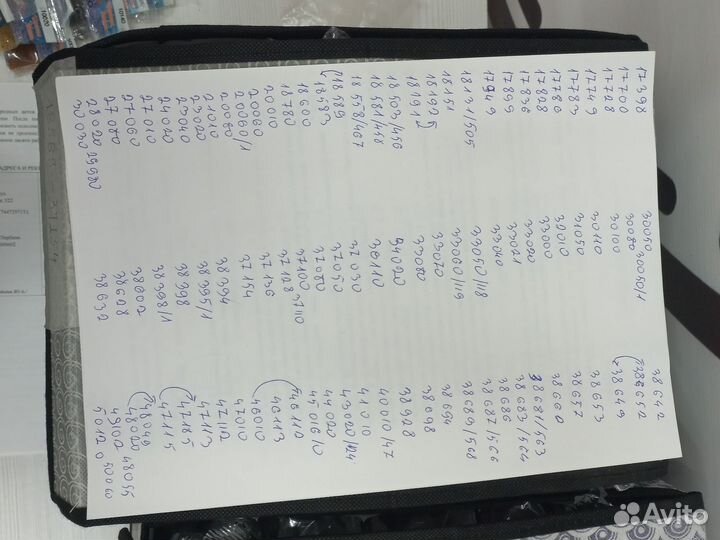 17398
17700
17728
17743
17783
17786
17828
17836
17859
17949
18131/505
18151
18192
18191
18503/456
18551/458
18558/467
18589
18593
18600
18780
20010
20060
20060/1
20080
21010
23020
23040
27020
27010
27060
27080
28020 29580
30030
30050 30050/1
30080
30100
30110
31050
32010
33000
33020
33021
33040
33050/118
33000/119
33070
33080
34020
36110
37030
37050
37080
37100 37110
37128
37136
37154
38394
38395/1
38398
38398/1
38602
38628
38632
38642
38652
38649
38653
38657
38660
38681/563
38683/564
38686
38687/566
38689/568
38694
38698
38928
40010/47
41010
43020/124
44020
45010
46110
46113
46010
47010
47112
47113
47185
47115
48040
48020 48055
49102
50120 50060
Avito